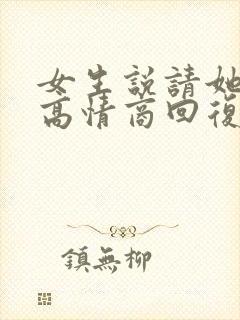 女生說請她
高情商回復
鎮無柳